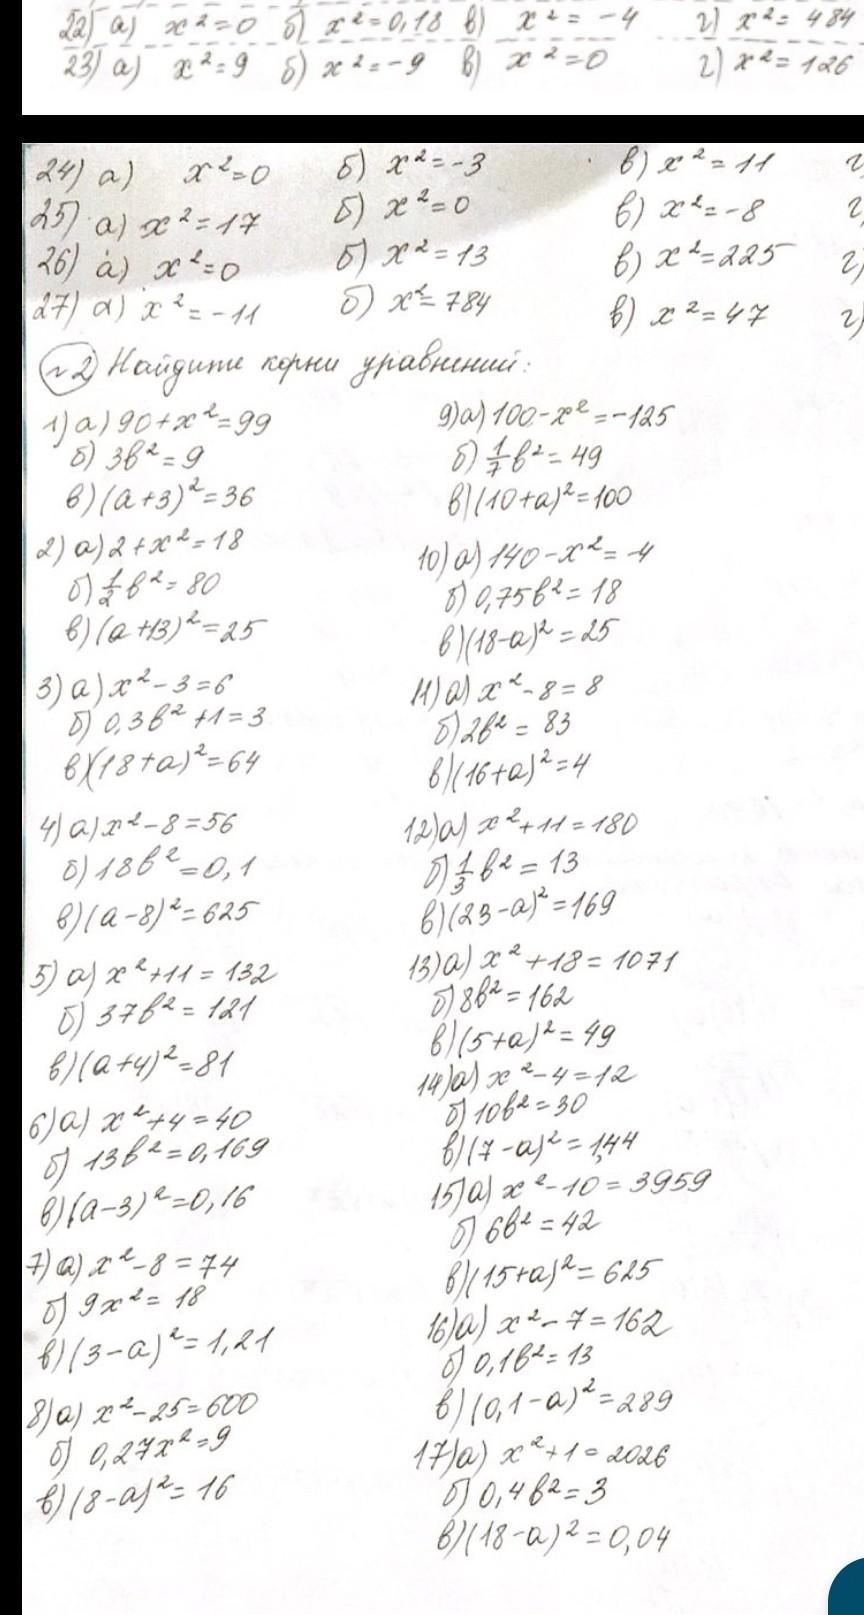 22) а) x²=0 б) x²=0,18 в) x²=-4 г) x²=484
23) а) x²=9 б) x²=-9 в) x²=0 г) x²=126
24) а) x²=0 б) x²=-3 в) x²=11 г)
25) а) x²=17 б) x²=0 в) x²=-8 г)
26) а) x²=0 б) x²=13 в) x²=225 г)
27) а) x²=-11 б) x²=784 в) x²=47 г)
№2 Найдите корни уравнений:
1) а) 90+x²=99
б) 3b²=9
в) (a+3)²=36
2) а) 2+x²=18
б) 1/2 b²=80
в) (a+13)²=25
3) а) x²-3=6
б) 0,3b²+1=3
в) (18+a)²=64
4) а) x²-8=56
б) 18b²=0,1
в) (a-8)²=625
5) а) x²+11=132
б) 37b²=121
в) (a+4)²=81
6) а) x²+4=40
б) 13b²=0,169
в) (a-3)²=0,16
7) а) x²-8=74
б) 9x²=18
в) (3-a)²=1,21
8) а) x²-25=600
б) 0,27x²=9
в) (8-a)²=16
9) а) 100-x²=-125
б) 1/7 b²=49
в) (10+a)²=100
10) а) 140-x²=-4
б) 0,75b²=18
в) (18-a)²=25
11) а) x²-8=8
б) 2b²=83
в) (16+a)²=4
12) а) x²+11=180
б) 1/3 b²=13
в) (23-a)²=169
13) а) x²+18=1071
б) 8b²=162
в) (5+a)²=49
14) а) x²-4=12
б) 10b²=30
в) (7-a)²=1,44
15) а) x²-10=3959
б) 6b²=42
в) (15+a)²=625
16) а) x²-7=162
б) 0,1b²=13
в) (0,1-a)²=289
17) а) x²+1=2026
б) 0,4b²=3
в) (18-a)²=0,04